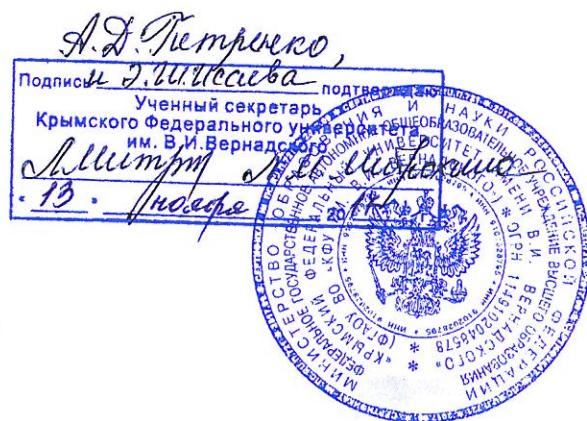 А.Д. Петренко,
Подпись и Э.Ш. Исаева подтверждаю
Ученный секретарь
Крымского Федерального университета
им. В.И.Вернадского
Л.М.
" 13 " ноября 20
МИНИСТЕРСТВО ОБРАЗОВАНИЯ И НАУКИ РОССИЙСКОЙ ФЕДЕРАЦИИ
ФЕДЕРАЛЬНОЕ ГОСУДАРСТВЕННОЕ АВТОНОМНОЕ ОБРАЗОВАТЕЛЬНОЕ УЧРЕЖДЕНИЕ ВЫСШЕГО ОБРАЗОВАНИЯ
«КРЫМСКИЙ ФЕДЕРАЛЬНЫЙ УНИВЕРСИТЕТ ИМЕНИ В.И. ВЕРНАДСКОГО»
(ФГАОУ ВО «КФУ ИМ. ОГРН 1149102048578